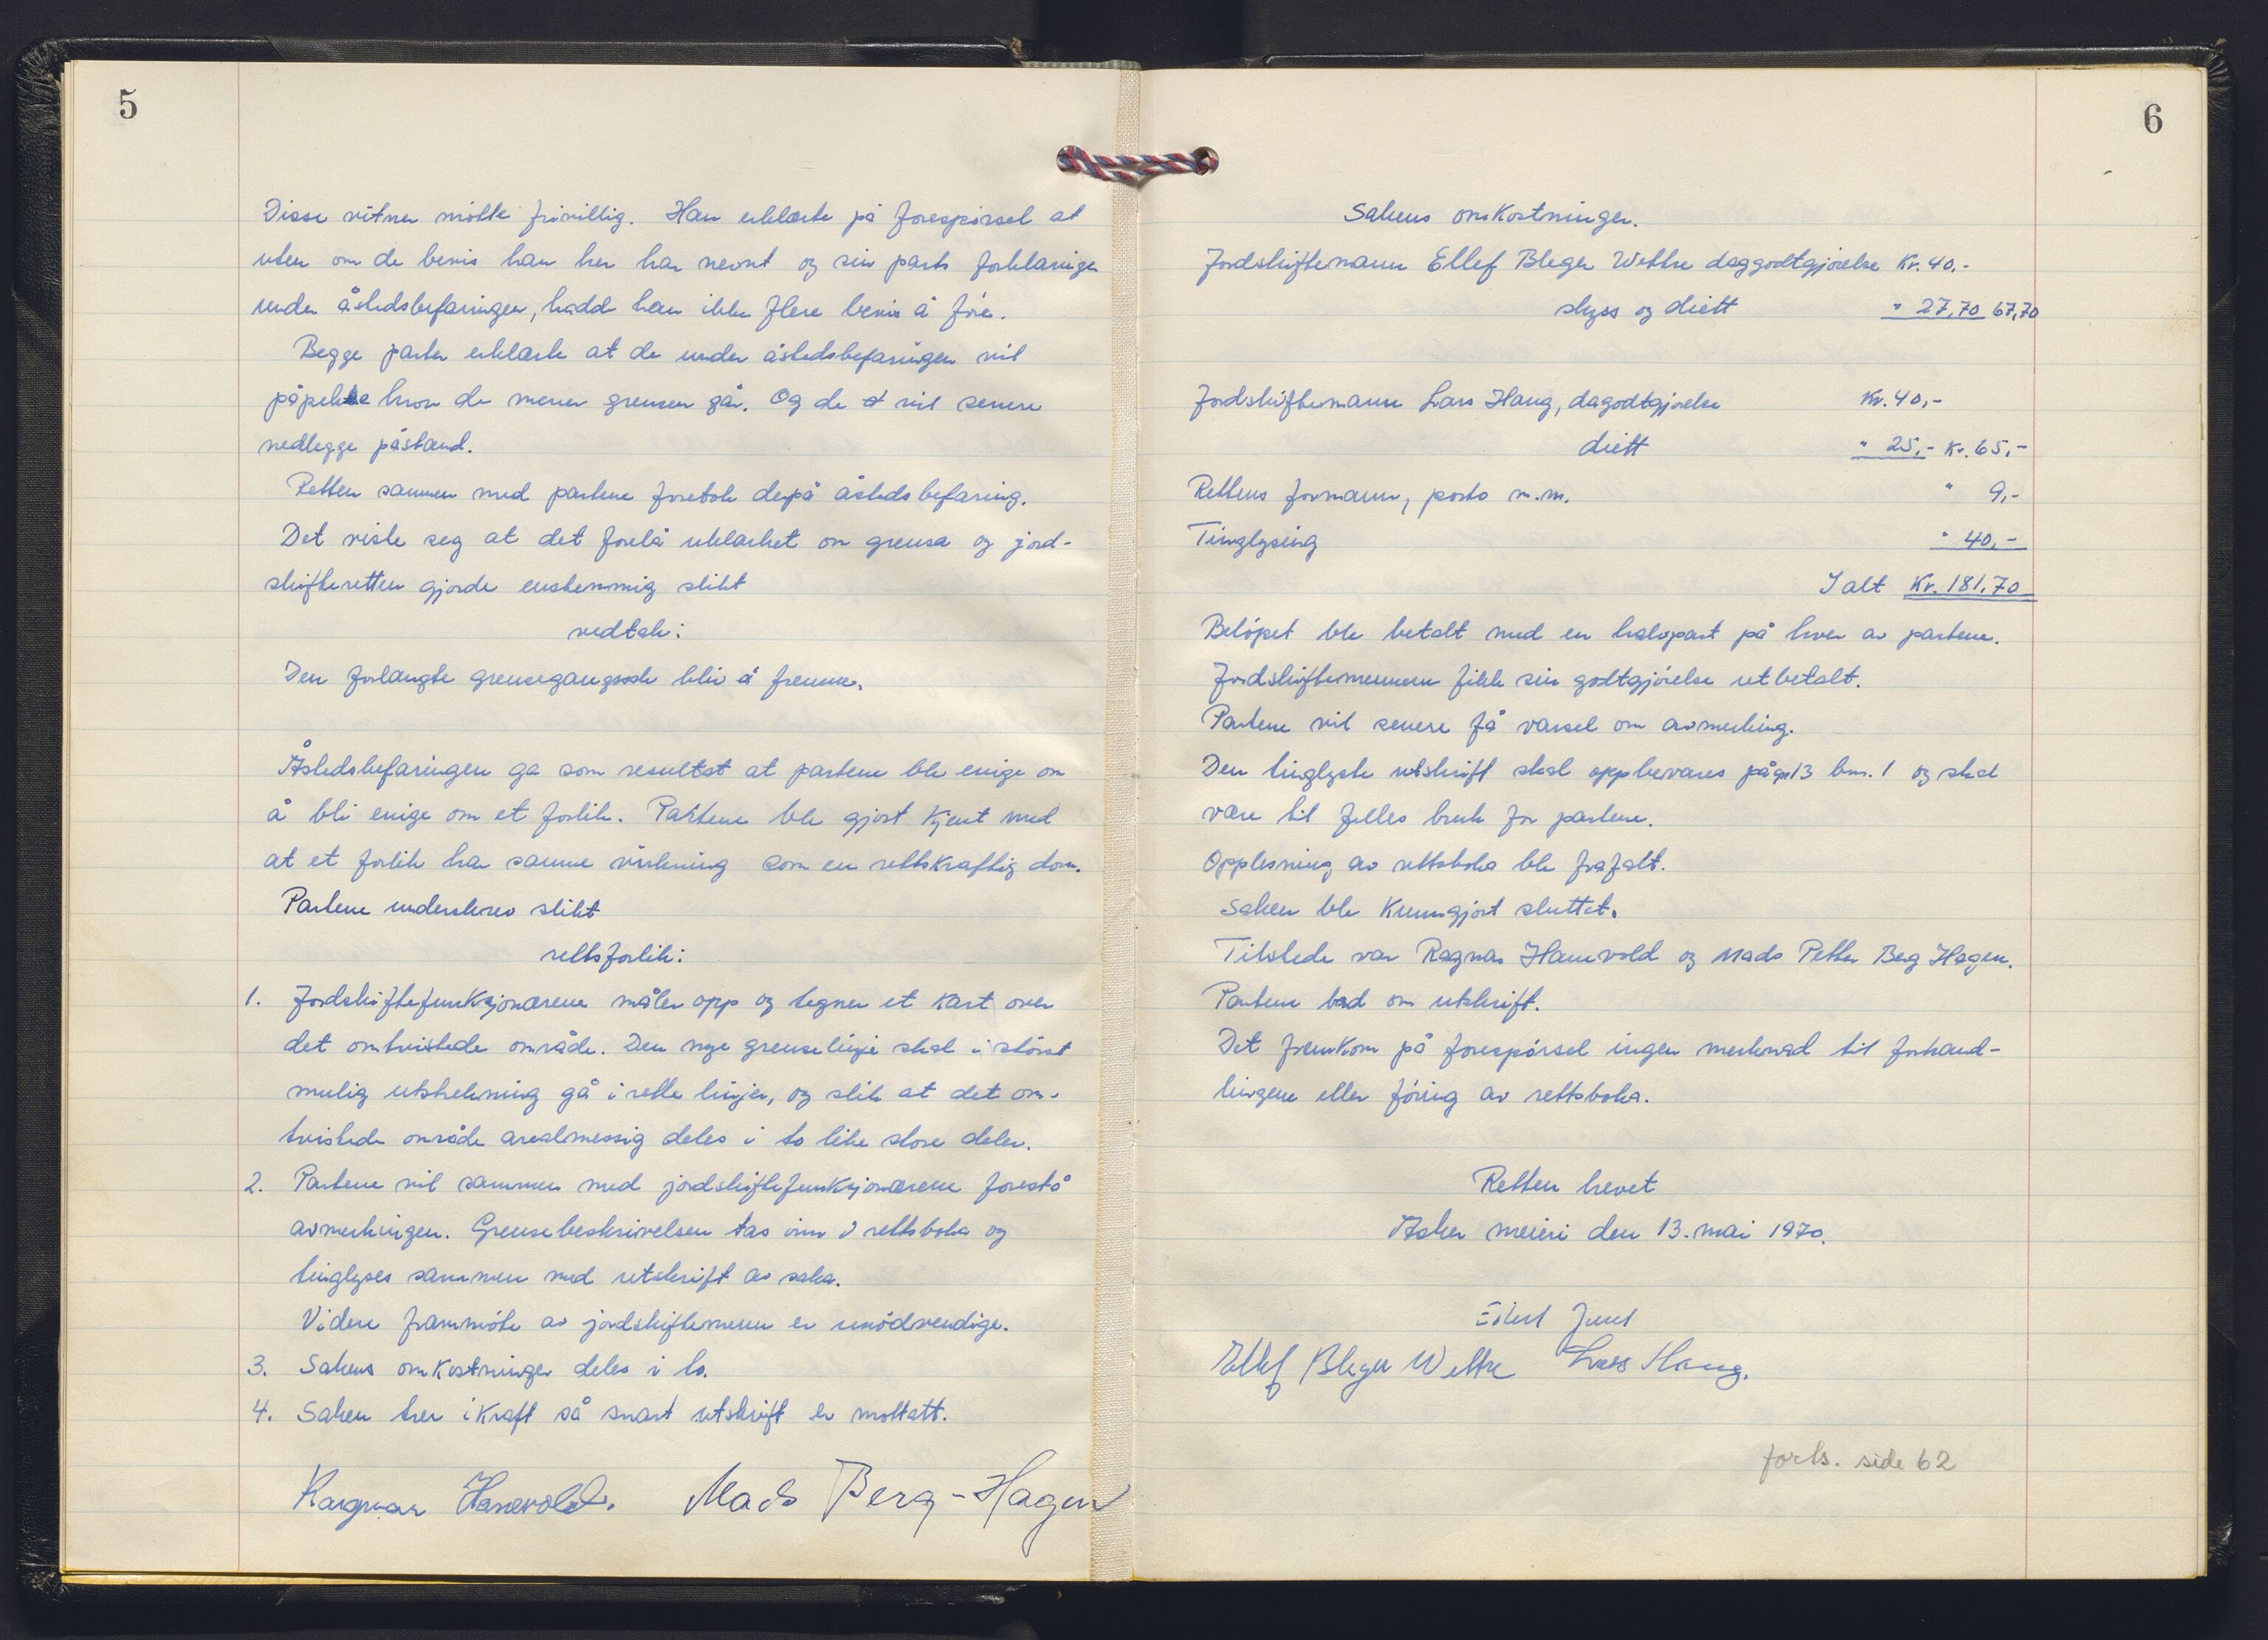 5
Disse vitner møtte frivillig. Han erklærte på forespørsel at
uten om de bevis han her har nevnt og sin parts forklaringer
under åstedsbefaringen, hadd han ikke flere bevis å føre.
Begge parter erklærte at de under åstedsbefaringen vil
påpeke hvor de mener grensen går. Og de vil senere
nedlegge påstand.
Retten sammen med partene foretok derpå åstedsbefaring.
Det viste seg at det forelå uklarhet om grensa og jord-
skifteretten gjorde enstemmig slikt
vedtak:
Den forlangte grensegangssak blir å fremme.
Åstedsbefaringen ga som resultat at partene ble enige om
å bli enige om et forlik. Partene ble gjort kjent med
at et forlik har samme virkning som en rettskraftig dom.
Partene underskrev slikt
rettsforlik:
1. Jordskiftefunksjonærene måler opp og tegner et kart over
det omtvistede område. Den nye grenselinje skal i størst
mulig utstrekning gå i rette linjer, og slik at det om-
tvistede område arealmessig deles i to like store deler.
2. Partene vil sammen med jordskiftefunksjonærene forestå
avmerkingen. Grensebeskrivelsen tas inn i rettsboka og
tinglyses sammen med utskrift av saka.
Videre frammøte av jordskiftemenn er unødvendige.
3. Sakens omkostninger deles i to.
4. Saken trer i kraft så snart utskrift er mottatt.
Ragnar Hanevold. Mads Berg-Hagen
6
Sakens omkostninger.
Jordskiftemann Ellef Bleger Wettre daggodtgjørelse Kr. 40.-
skyss og diett " 27,70 67,70
Jordskiftemann Lars Haug, dagodtgjørelse Kr. 40,-
diett " 25,- Kr. 65,-
Rettens formann, porto m.m. " 9,-
Tinglysing " 40,-
I alt Kr. 181,70
Beløpet ble betalt med en halvpart på hver av partene.
Jordskiftemennene fikk sin godtgjørelse utbetalt.
Partene vil senere få varsel om avmerking.
Den tinglyste utskrift skal oppbevares på gr 13 bnr. 1 og skal
være til felles bruk for partene.
Opplesning av rettsboka ble frafalt.
Saken ble kunngjort sluttet.
Tilstede var Ragnar Hanevold og Mads Petter Berg Hagen.
Partene bad om utskrift.
Det fremkom på forespørsel ingen merknad til forhand-
lingene eller føring av rettsboka.
Retten hevet
Asker meieri den 13. mai 1970.
Eilert Juul
Ellef Bleger Wettre Lars Haug.
forts. side 62